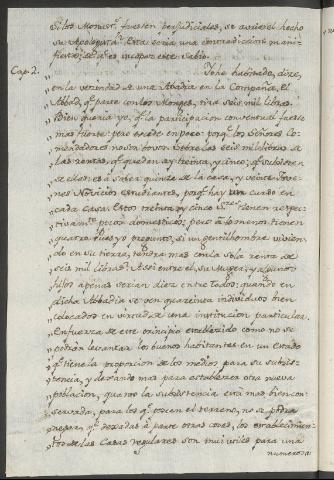 Si los Monast.s fuesen perjudiciales, se avria el hecho
su Apologista. Esta seria una contradiccion mani-
fiesta, de q.e es incapaz este Sabio.
Cap. 2. Yo he habitado, dize,
en la vecindad de una Abadia en la Campaña, el
Abbad, q.e parte con los Monges, tira seis mil libras.
Bien queria yo, q.e la participacion conventual fuese
mas fuerte: pero excede en poco: porq.e los Señores Co-
mendadores no son sobre las seis mil libras
de las rentas, q.e quedan ay treinta, y cinco; q.e subsisten
de ellos, es á saber quince de la casa, y veinte Jove-
nes Novicios estudiantes, porq.e hay un curso en
cada casa. Estos treinta, y cinco tienen respec-
tivam.te pocos domesticos; pero á lo menos tienen
quatro. Pues yo pregunto, si un gentilhombre vivien-
do en su tierra, tendra mas con la sola renta de
seis mil libras? Assi entre él, su Muger, y algunos
hijos apenas serian diez entre todos; quando en
dicha Abbadia se ven quarenta individuos bien
colocados en virtud de una institucion particular.
En fuerza de este principio establecido como no se
podrian levantar los buenos habitantes en un estado
q.e tiene la proporcion de los medios para su subsis-
tencia, y llevando mas para establecer otra nueva
poblacion, quando la subsistencia está mas bien con-
servada, para los q.e ocupan el terreno, no se podra
negar, q.e dexadas á parte otras cosas, los establecimien-
tos de las Casas regulares son mui utiles para una
numerosa